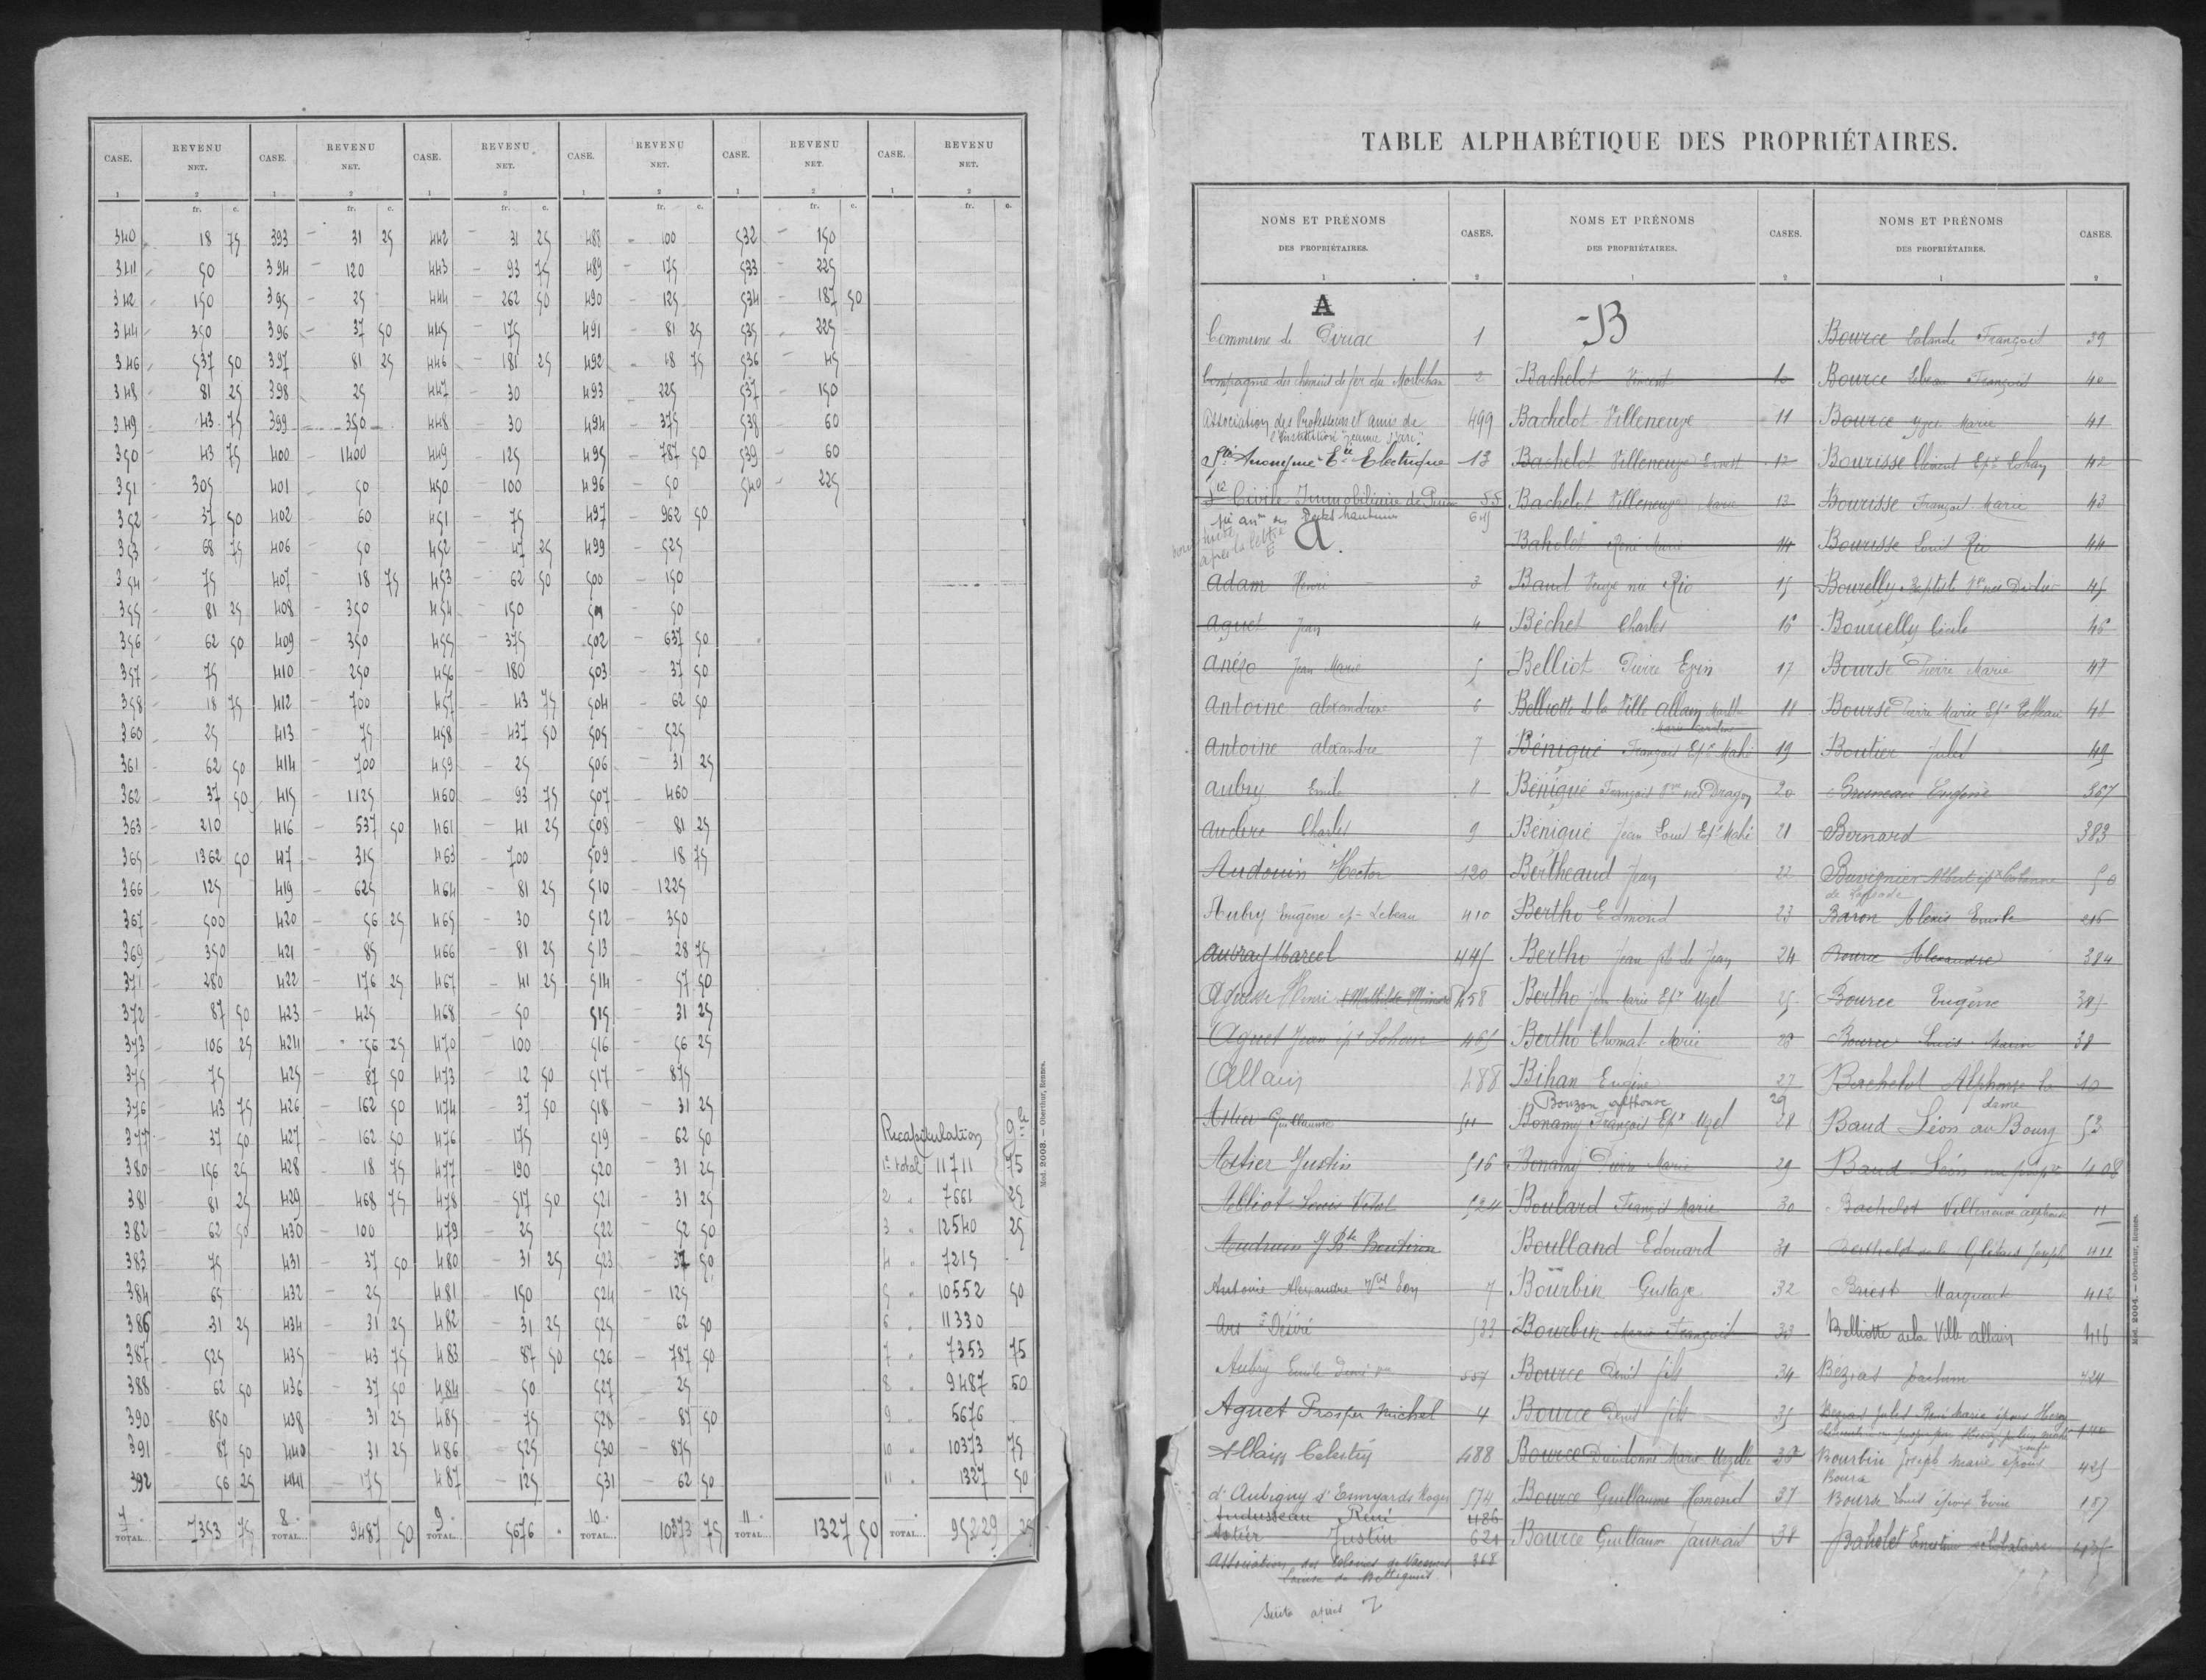 CASE. REVENU NET. CASE. REVENU NET. CASE. REVENU NET. CASE. REVENU NET. CASE. REVENU NET. CASE. REVENU NET.
1 2 1 2 1 2 1 2 1 2 1 2
fr. c. fr. c. fr. c. fr. c. fr. c. fr. c.
340 18 75 393 31 25 442 31 25 488 100 532 150
341 50 394 120 443 93 75 489 175 533 225
342 150 395 25 444 262 50 490 125 534 187 50
344 350 396 37 50 445 175 491 81 25 535 225
346 537 50 397 81 25 446 181 25 492 18 75 536 45
348 81 25 398 25 447 30 493 225 537 150
349 43 75 399 350 448 30 494 375 538 60
350 43 75 400 1400 449 125 495 787 50 539 60
351 305 401 50 450 100 496 50 540 225
352 37 50 402 60 451 75 497 962 50
353 68 75 406 50 452 47 25 499 525
354 75 407 18 75 453 62 50 500 150
355 81 25 408 350 454 150 501 50
356 62 50 409 350 455 375 502 637 50
357 75 410 250 456 180 503 37 50
358 18 75 412 700 457 43 75 504 62 50
360 25 413 75 458 437 50 505 525
361 62 50 414 700 459 25 506 31 25
362 37 50 415 1125 460 93 75 507 460
363 210 416 537 50 461 41 25 508 81 25
365 1362 50 417 315 463 700 509 18 75
366 125 419 625 464 81 25 510 1225
367 500 420 56 25 465 30 512 350
369 350 421 85 466 81 25 513 28 75
371 280 422 176 25 467 41 25 514 57 50
372 87 50 423 425 468 50 515 31 25
373 106 25 424 56 25 470 100 516 56 25
375 75 425 87 50 473 12 50 517 875
376 43 75 426 162 50 474 37 50 518 31 25
377 37 50 427 162 50 476 175 519 62 50 Recapitulation
380 156 25 428 18 75 477 190 520 31 25 1er total 11711 75
381 81 25 429 468 75 478 517 50 521 31 25 2 " 7661 25
382 62 50 430 100 479 25 522 52 50 3 " 12540 25
383 75 431 37 50 480 31 25 523 37 50 4 " 7215
384 65 432 25 481 150 524 125 5 " 10552 50
386 31 25 434 31 25 482 31 25 525 62 50 6 " 11330
387 525 435 43 75 483 87 50 526 787 50 7 " 7353 75
388 62 50 436 37 50 484 50 527 25 8 " 9487 50
390 850 438 31 25 485 75 528 87 50 9 " 5676
391 87 50 440 31 25 486 525 530 875 10 " 10373 75
392 56 25 441 175 487 125 531 62 50 11 " 1327 50
7 TOTAL... 7353 75 8 TOTAL... 9487 50 9 TOTAL... 5676 10 TOTAL... 10373 75 11 TOTAL... 1327 50 TOTAL... 95229 25
Mod. 2003. — Oberthur, Rennes.
TABLE ALPHABÉTIQUE DES PROPRIÉTAIRES.
NOMS ET PRÉNOMS DES PROPRIÉTAIRES. CASES. NOMS ET PRÉNOMS DES PROPRIÉTAIRES. CASES. NOMS ET PRÉNOMS DES PROPRIÉTAIRES. CASES.
1 2 1 2 1 2
A
Commune de Piriac 1
Compagnie des chemins de fer du Morbihan 2
Association des Professeurs et amis de 499
l'Institution Jeanne d'arc
Sté Anonyme Cie Electrique 13
Sté Civile Immobilière de 55
645
après la lettre
a.
Adam Henri 3
Aguet Jean 4
Anézo Jean Marie 5
Antoine alexandrine 6
Antoine alexandre 7
Aubry Emile 8
Auclere Charles 9
Audouin Hector 120
Aubry Eugène ep. Lebeau 410
Auvray Marcel 445
458
Aguet Jean 465
Allain 488
Guillaume 511
Astier Justin 516
Louis Vital 524
Antoine Alexandre 7
Désiré 533
Aubry Emile 557
Aguet Prosper Michel 4
Allain Célestin 488
d'Aubigny Roger 574
René 486
Astier Justin 621
Association des Colonies de Vacances 368
Suite après Z
B
Bachelot Vincent 10
Bachelot Villeneuve 11
Bachelot Villeneuve Ernest 12
Bachelot Villeneuve Marie 13
Baholet René Marie 14
Baud Veuve née Rio 15
Béchet Charles 16
Belliot Pierre Ezin 17
Belliotte de la Ville allain 18
Bénigué François Epx Mahé 19
Bénigué François Vve née Dragon 20
Bénigué Jean Louis Epx Mahé 21
Bertheaud Jean 22
Bertho Edmond 23
Bertho Jean fils de Jean 24
Bertho Jean Marie Epx Uzel 25
Bertho Thomas Marie 26
Bihan Eugène 27
Bouzon alphonse 29
Bonamy François Epx Uzel 28
Bonamy Pierre Marie 29
Boulard François Marie 30
Boulland Edouard 31
Bourbin Gustave 32
Bourbin Marie François 33
Bource Denis fils 34
Bource Denis fils 35
Bource Dieudonné Marie 36
Bource Guillaume 37
Bource Guillaume 38
Bource François 39
Bource Lebeau François 40
Bource Yves Marie 41
Bourisse Clément 42
Bourisse François Marie 43
Bourisse Louis 44
Bourelly Baptiste Vve née 45
Bourrelly Cécile 46
Bourse Pierre Marie 47
Bourse Pierre Marie Epx 48
Boutier Jules 49
Eugène 367
Bernard 383
Albert 50
Baron Alexis Emile 216
Bource Alexandre 384
Bource Eugène 385
Bource Louis 38
Bachelot Alphonse la dame 10
Baud Léon au Bourg 53
Baud Léon 408
Bachelot Villeneuve alphonse 11
Joseph 411
Marquant 412
Belliotte de la Ville allain 416
Bézias Joachim 424
Bourbin Joseph Marie époux 425
Bource
Bourse Louis époux 187
Baholet célibataire
Mod. 2004. — Oberthur, Rennes.